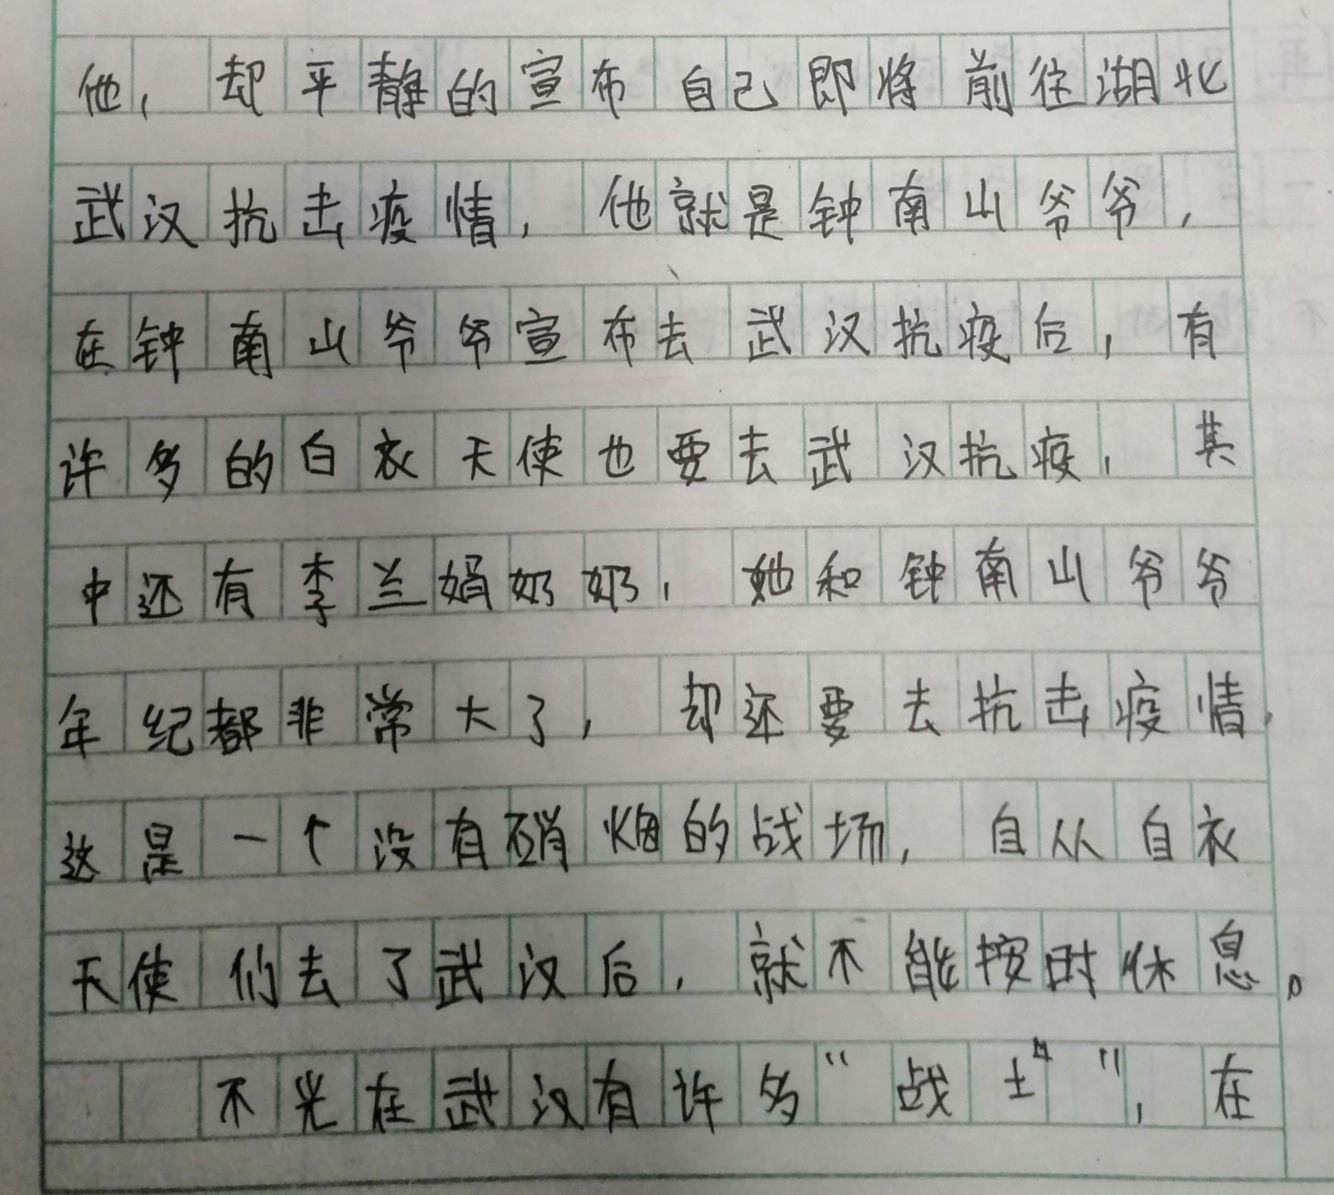 他,却平静的宣布自己即将前往湖北
武汉抗击疫情,他就是钟南山爷爷,
在钟南山爷爷宣布去武汉抗疫后,有
许多的白衣天使也要去武汉抗疫,其
中还有李兰娟奶奶,她和钟南山爷爷
年纪都非常大了,却还要去抗击疫情,
这是一个没有硝烟的战场,自从白衣
天使们去了武汉后,就不能按时休息。
不光在武汉有许多“战士”,在